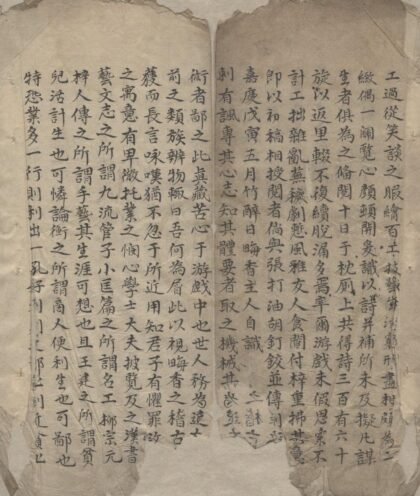 工過從笑談之服繪百工技藝筆法窮形盡相頗為
緻偶一閱覽心頗頭開爰識以詩并補所未及擬凡謀
生者俱為之備閱十日于枕厠上共得詩三百有六十
旋以返里輟不復續脫漏多焉率爾游戲未假思索不
計工拙雜亂蕪穢劇慙風雅友人貪閙付梓重拂其意
即以初稿相授閱者倘與張打油胡釘鉸並傳則
嘉慶戊寅五月竹醉日晦香主人自識
刺有諷專其心志知其體要者取之機械其
術者鄙之此真藏苦心于游戲中也世人務為遠
前之類族辨物輒曰吾何為屑此以視晦香之稽古
而長言咏嘆猶不忘于所近用知君子有懼罪
之寓意有卑微托業之惻心學士大夫披覽及之漢書
藝文志之所謂九流管子小匡篇之所謂名工柳宗元
梓人傳之所謂手藝其生涯可想也且王建之所謂貧
兒活計生也可憐論衡之所謂商人便利生也可鄙也
特恐業多一行則利出一孔